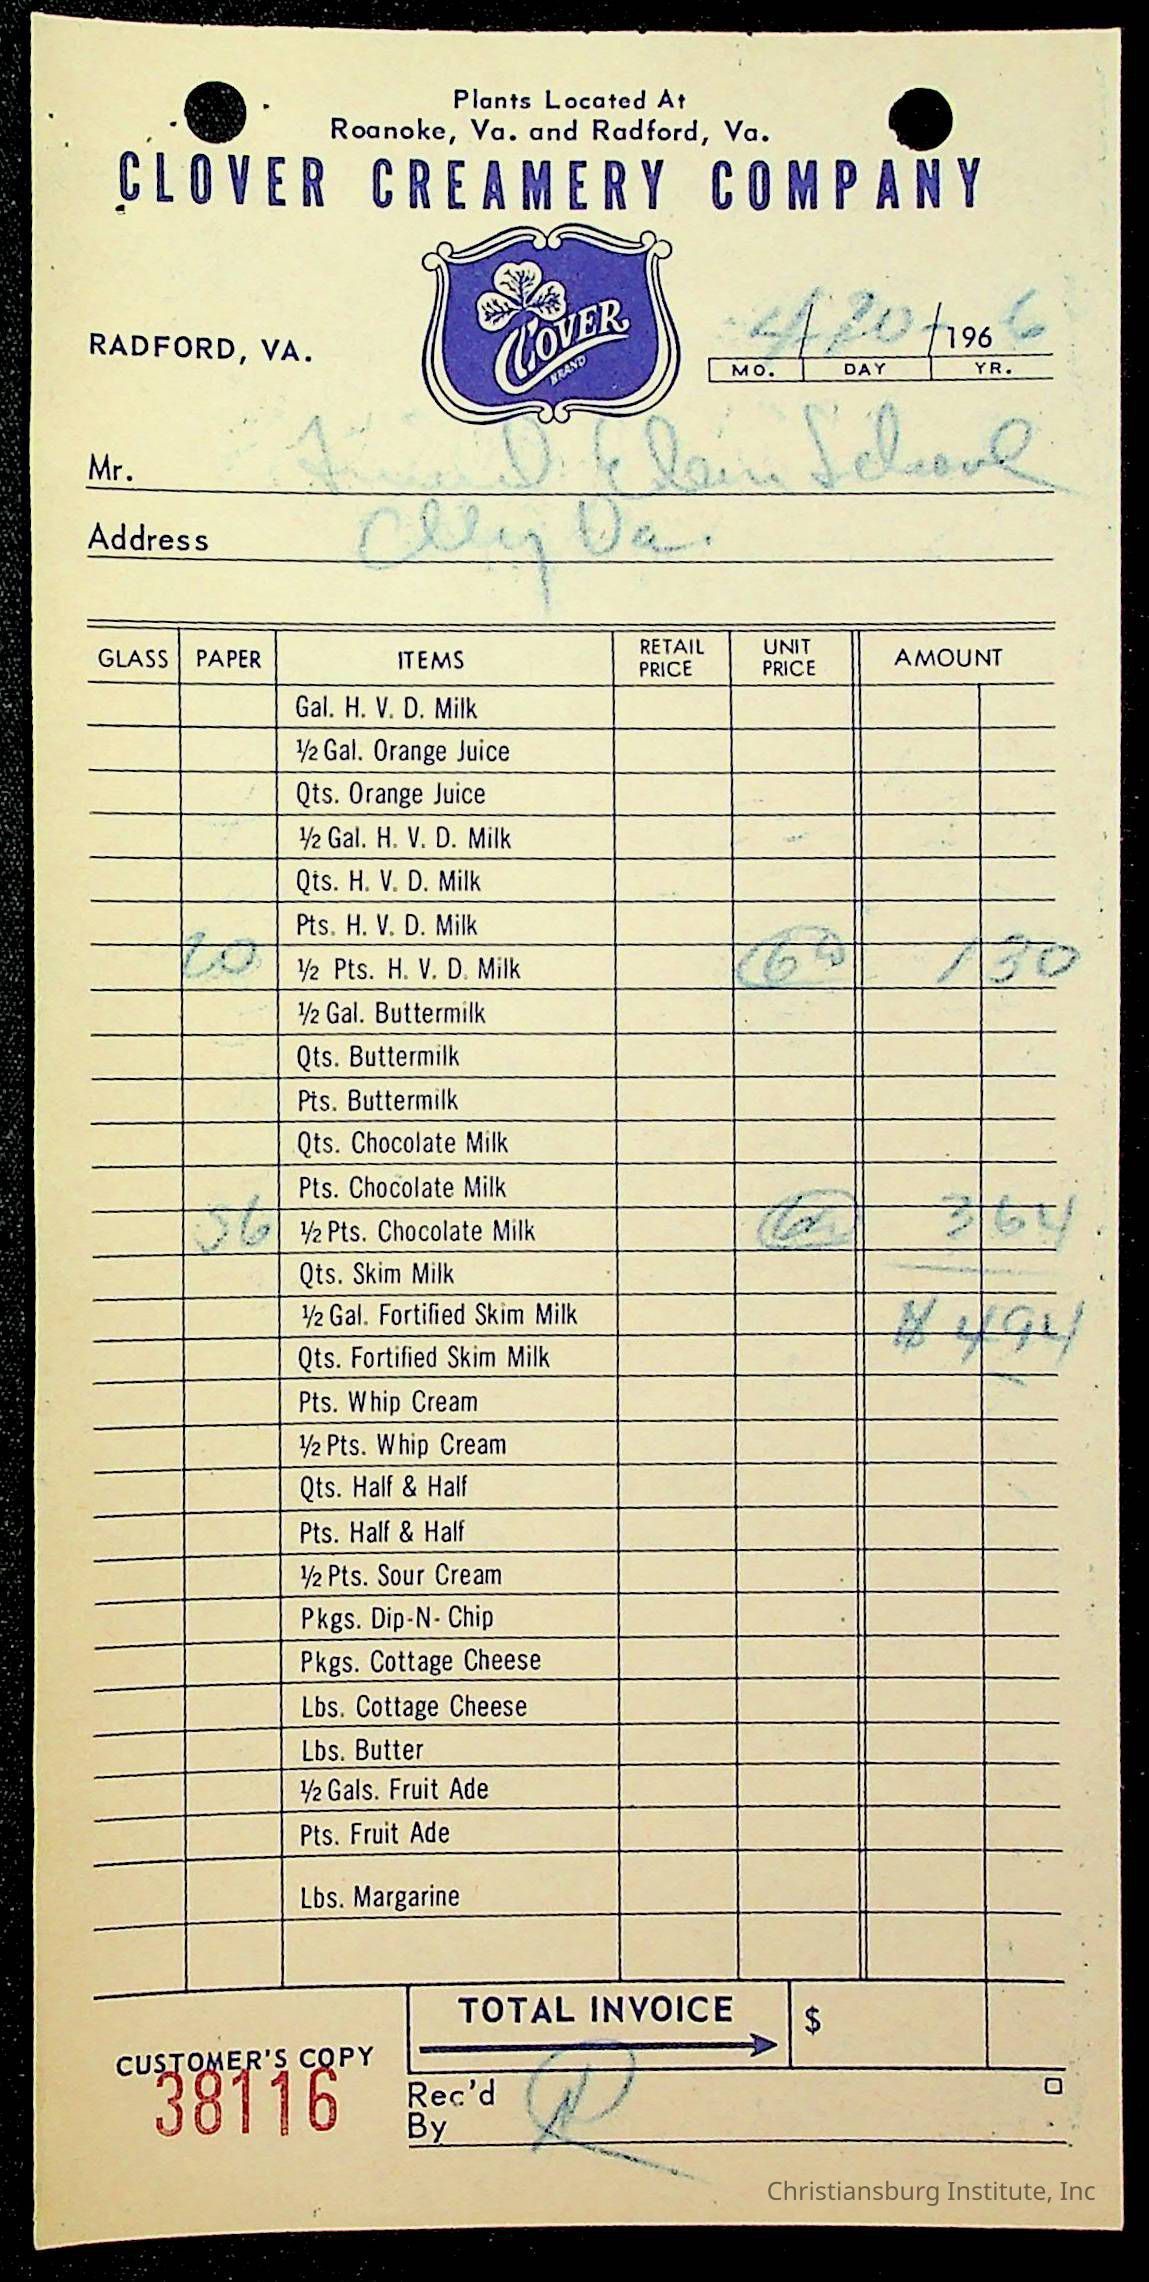 Plants Located At
Roanoke, Va. and Radford, Va.
CLOVER CREAMERY COMPANY
CLOVER
BRAND
RADFORD, VA.
4/20/1966
MO. DAY YR.
Mr. Elem School
Address Va.
GLASS PAPER ITEMS RETAIL PRICE UNIT PRICE AMOUNT
Gal. H. V. D. Milk
½ Gal. Orange Juice
Qts. Orange Juice
½ Gal. H. V. D. Milk
Qts. H. V. D. Milk
Pts. H. V. D. Milk
20 ½ Pts. H. V. D. Milk 1 30
½ Gal. Buttermilk
Qts. Buttermilk
Pts. Buttermilk
Qts. Chocolate Milk
Pts. Chocolate Milk
56 ½ Pts. Chocolate Milk 3 64
Qts. Skim Milk
½ Gal. Fortified Skim Milk
$ 4 94
Qts. Fortified Skim Milk
Pts. Whip Cream
½ Pts. Whip Cream
Qts. Half & Half
Pts. Half & Half
½ Pts. Sour Cream
Pkgs. Dip-N-Chip
Pkgs. Cottage Cheese
Lbs. Cottage Cheese
Lbs. Butter
½ Gals. Fruit Ade
Pts. Fruit Ade
Lbs. Margarine
TOTAL INVOICE $
CUSTOMER'S COPY
38116
Rec'd
By
Christiansburg Institute, Inc